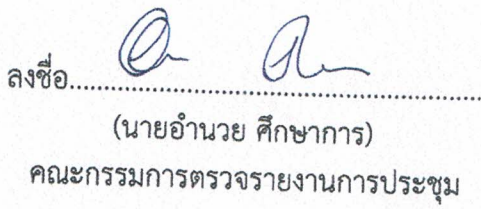 ลงชื่อ......................................................................
(นายอำนวย ศึกษาการ)
คณะกรรมการตรวจรายงานการประชุม